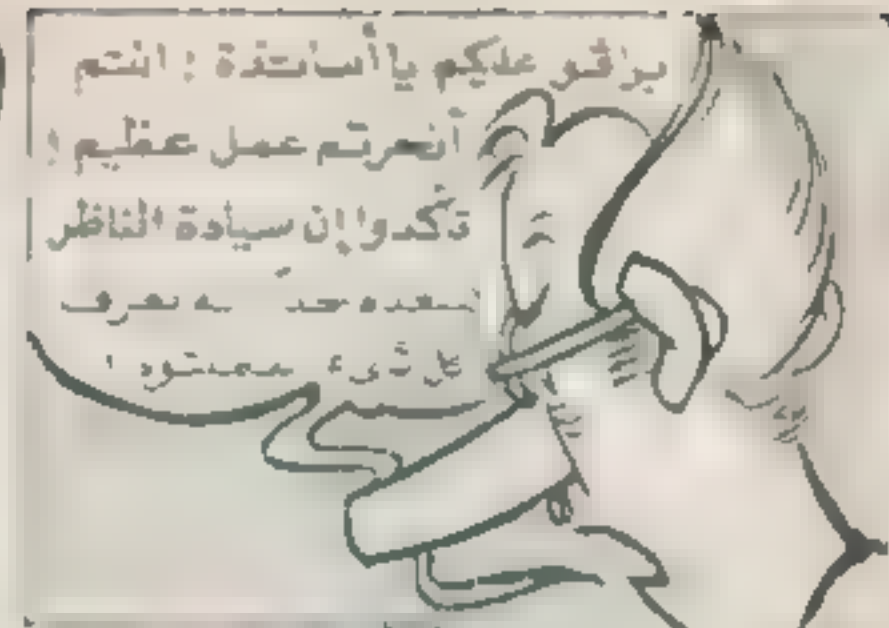 برافو عليكم يا أساتذة ! انتم
أنجزتم عمل عظيم !
تأكدوا إن سيادة الناظر
يعرف
كل شيء